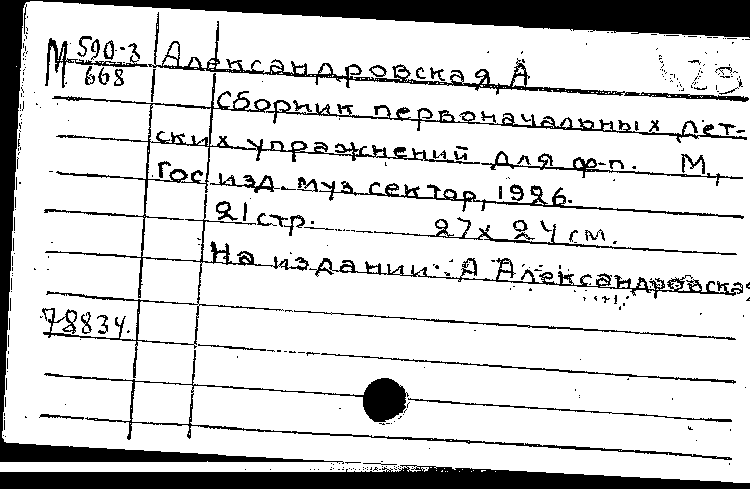 М 590-3
668
Александровская, А
Сборник первоначальных дет-
ских упражнений для ф-п. М.,
Гос изд. муз сектор, 1926.
21 стр. 27 x 24 см.
На издании: А Александровская
78834.